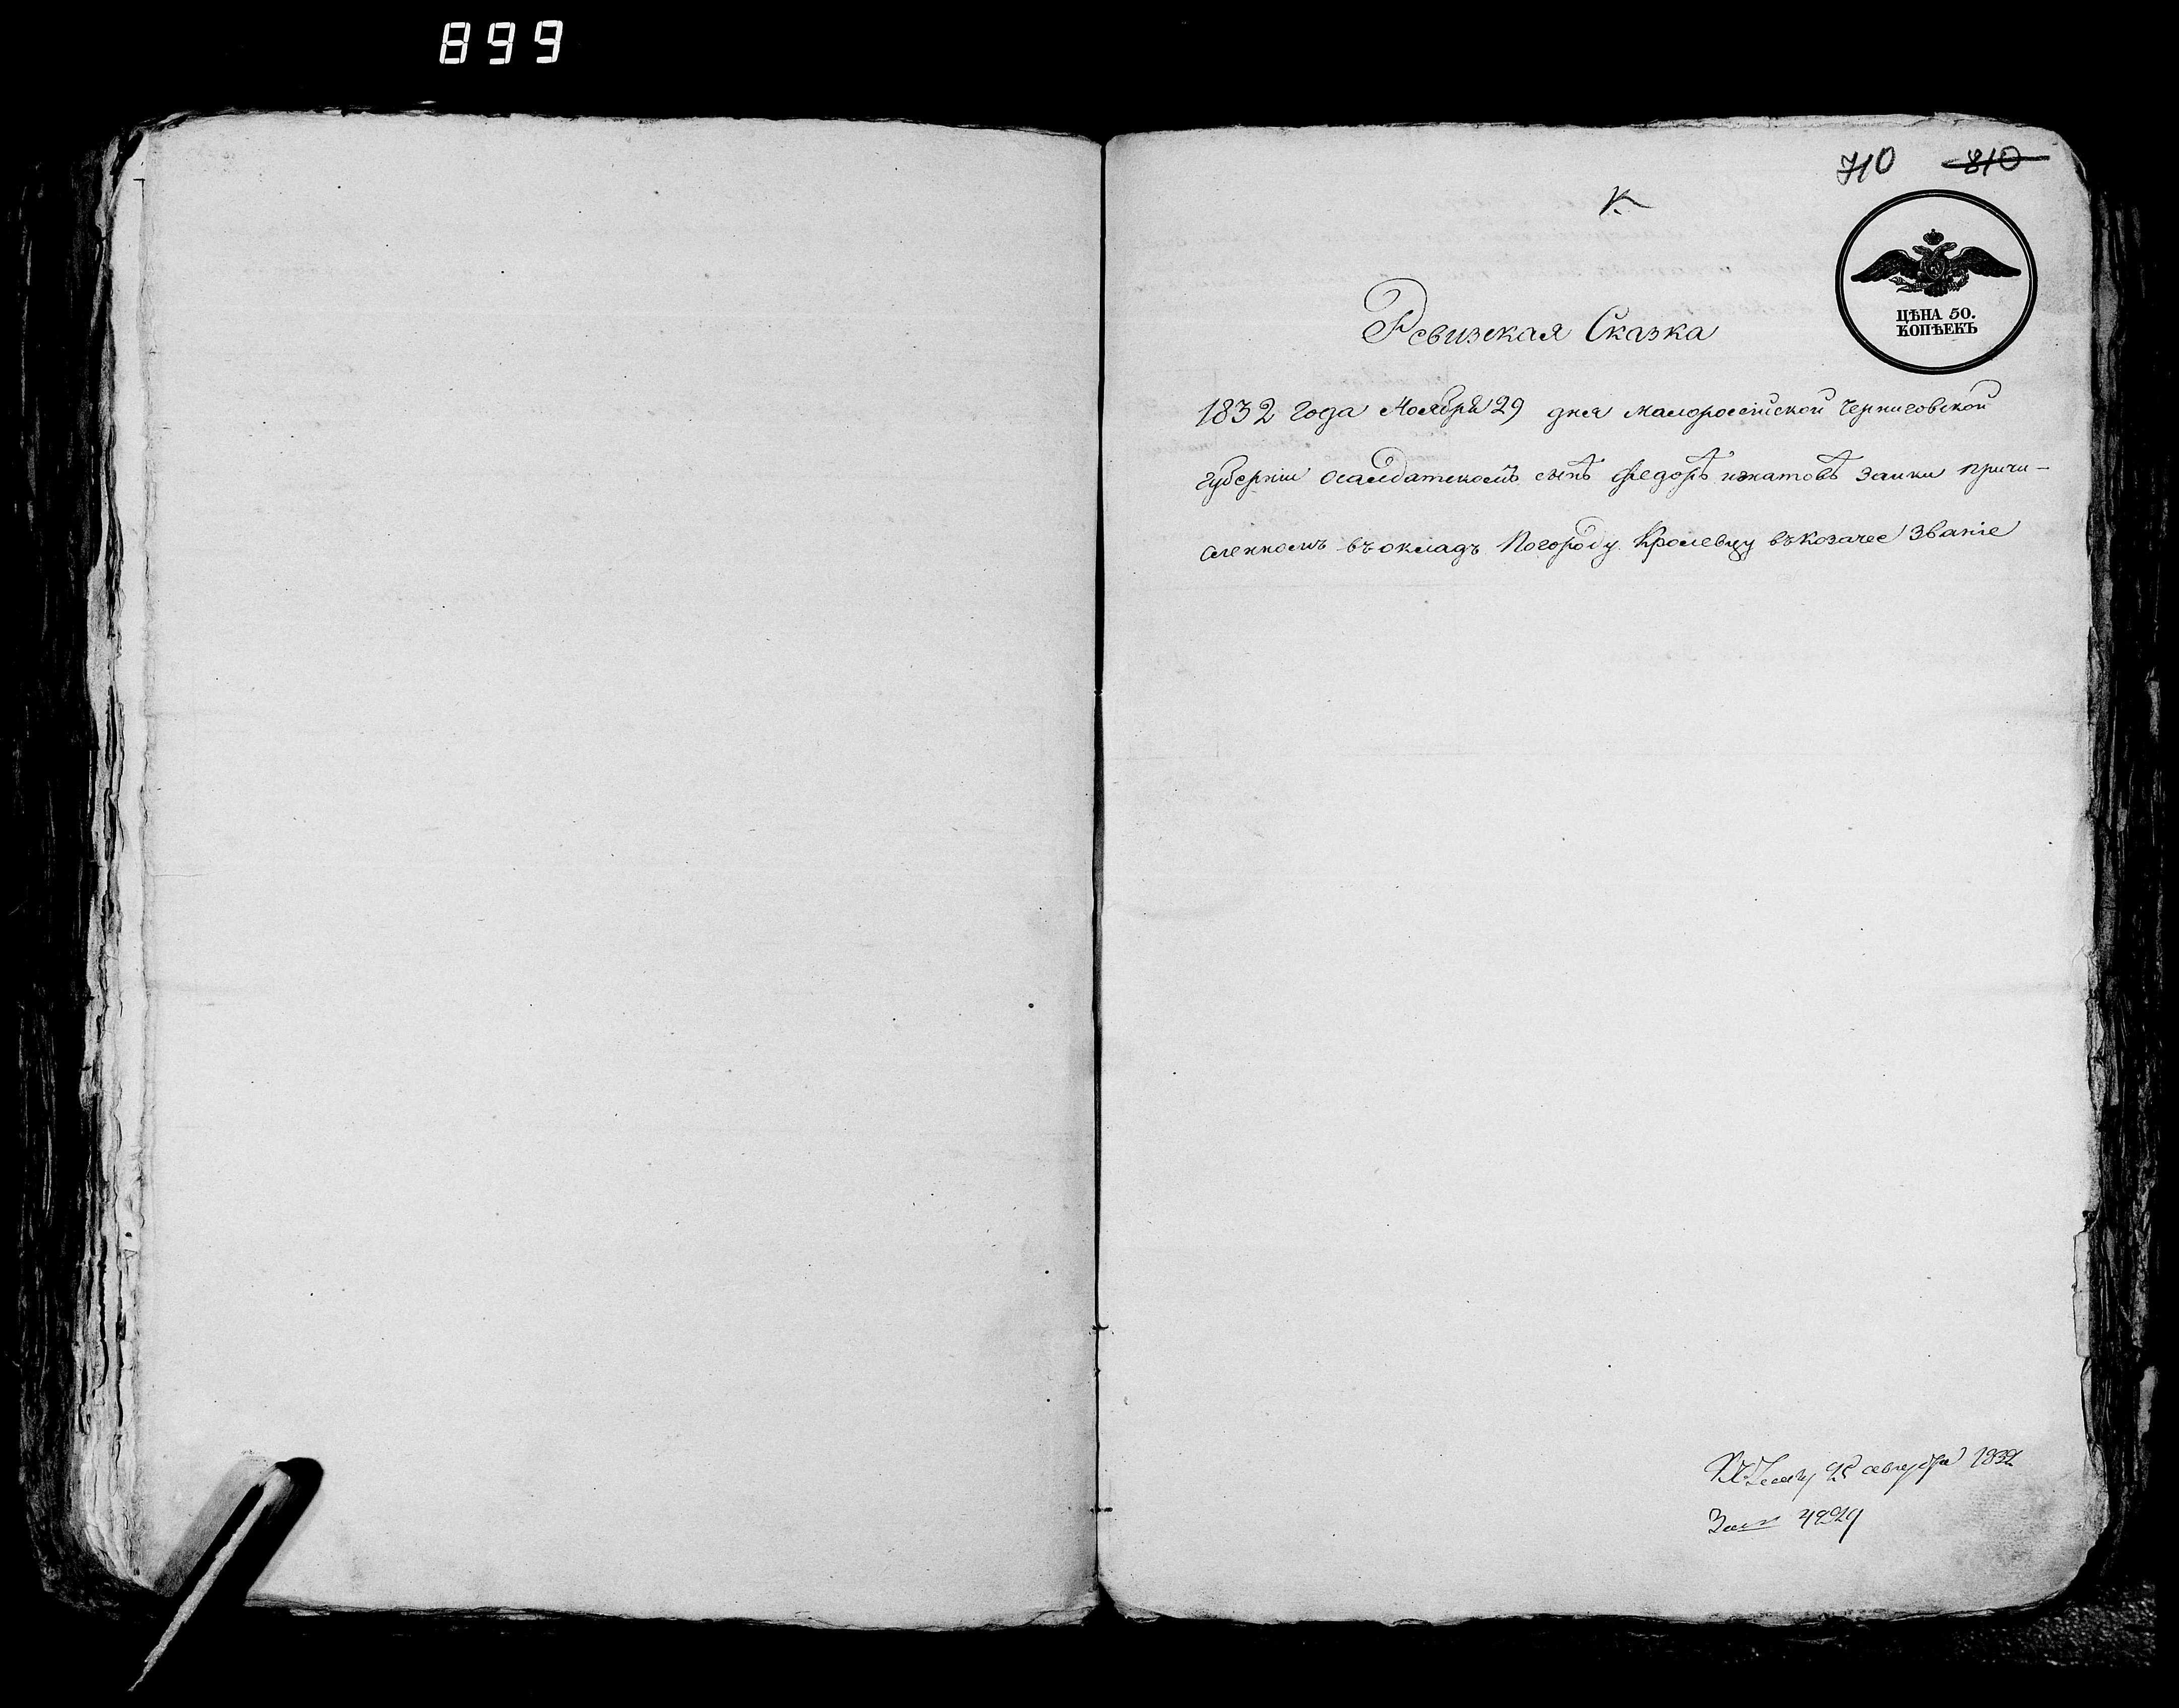 899
710 810
К.
ЦѢНА 50.
КОПѢЕКЪ
Ревизская Сказка
1832 года Ноября 29 дня малороссійской Черниговской
губерніи осалдатскомъ сынѣ Федорѣ игнатовѣ Заики причи-
сленномъ въокладъ Погороду Кролевцу въкозачее Званіе
1832